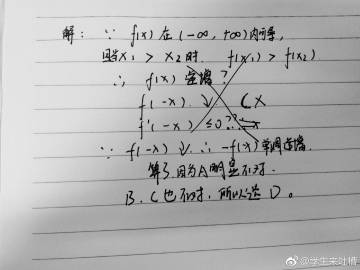 解: ∵ f(x) 在 (-∞, +∞) 内可导,
且当 x₁ > x₂ 时, f(x₁) > f(x₂)
∴ f(x) 递增?
f(-x) ↓ (×
f'(-x) ≤0??
∵ f(-x) ↓ ∴ -f(x) 单调递增.
算了, 因为 A 明显不对.
B、C 也不对, 所以选 D。
@学生来吐槽